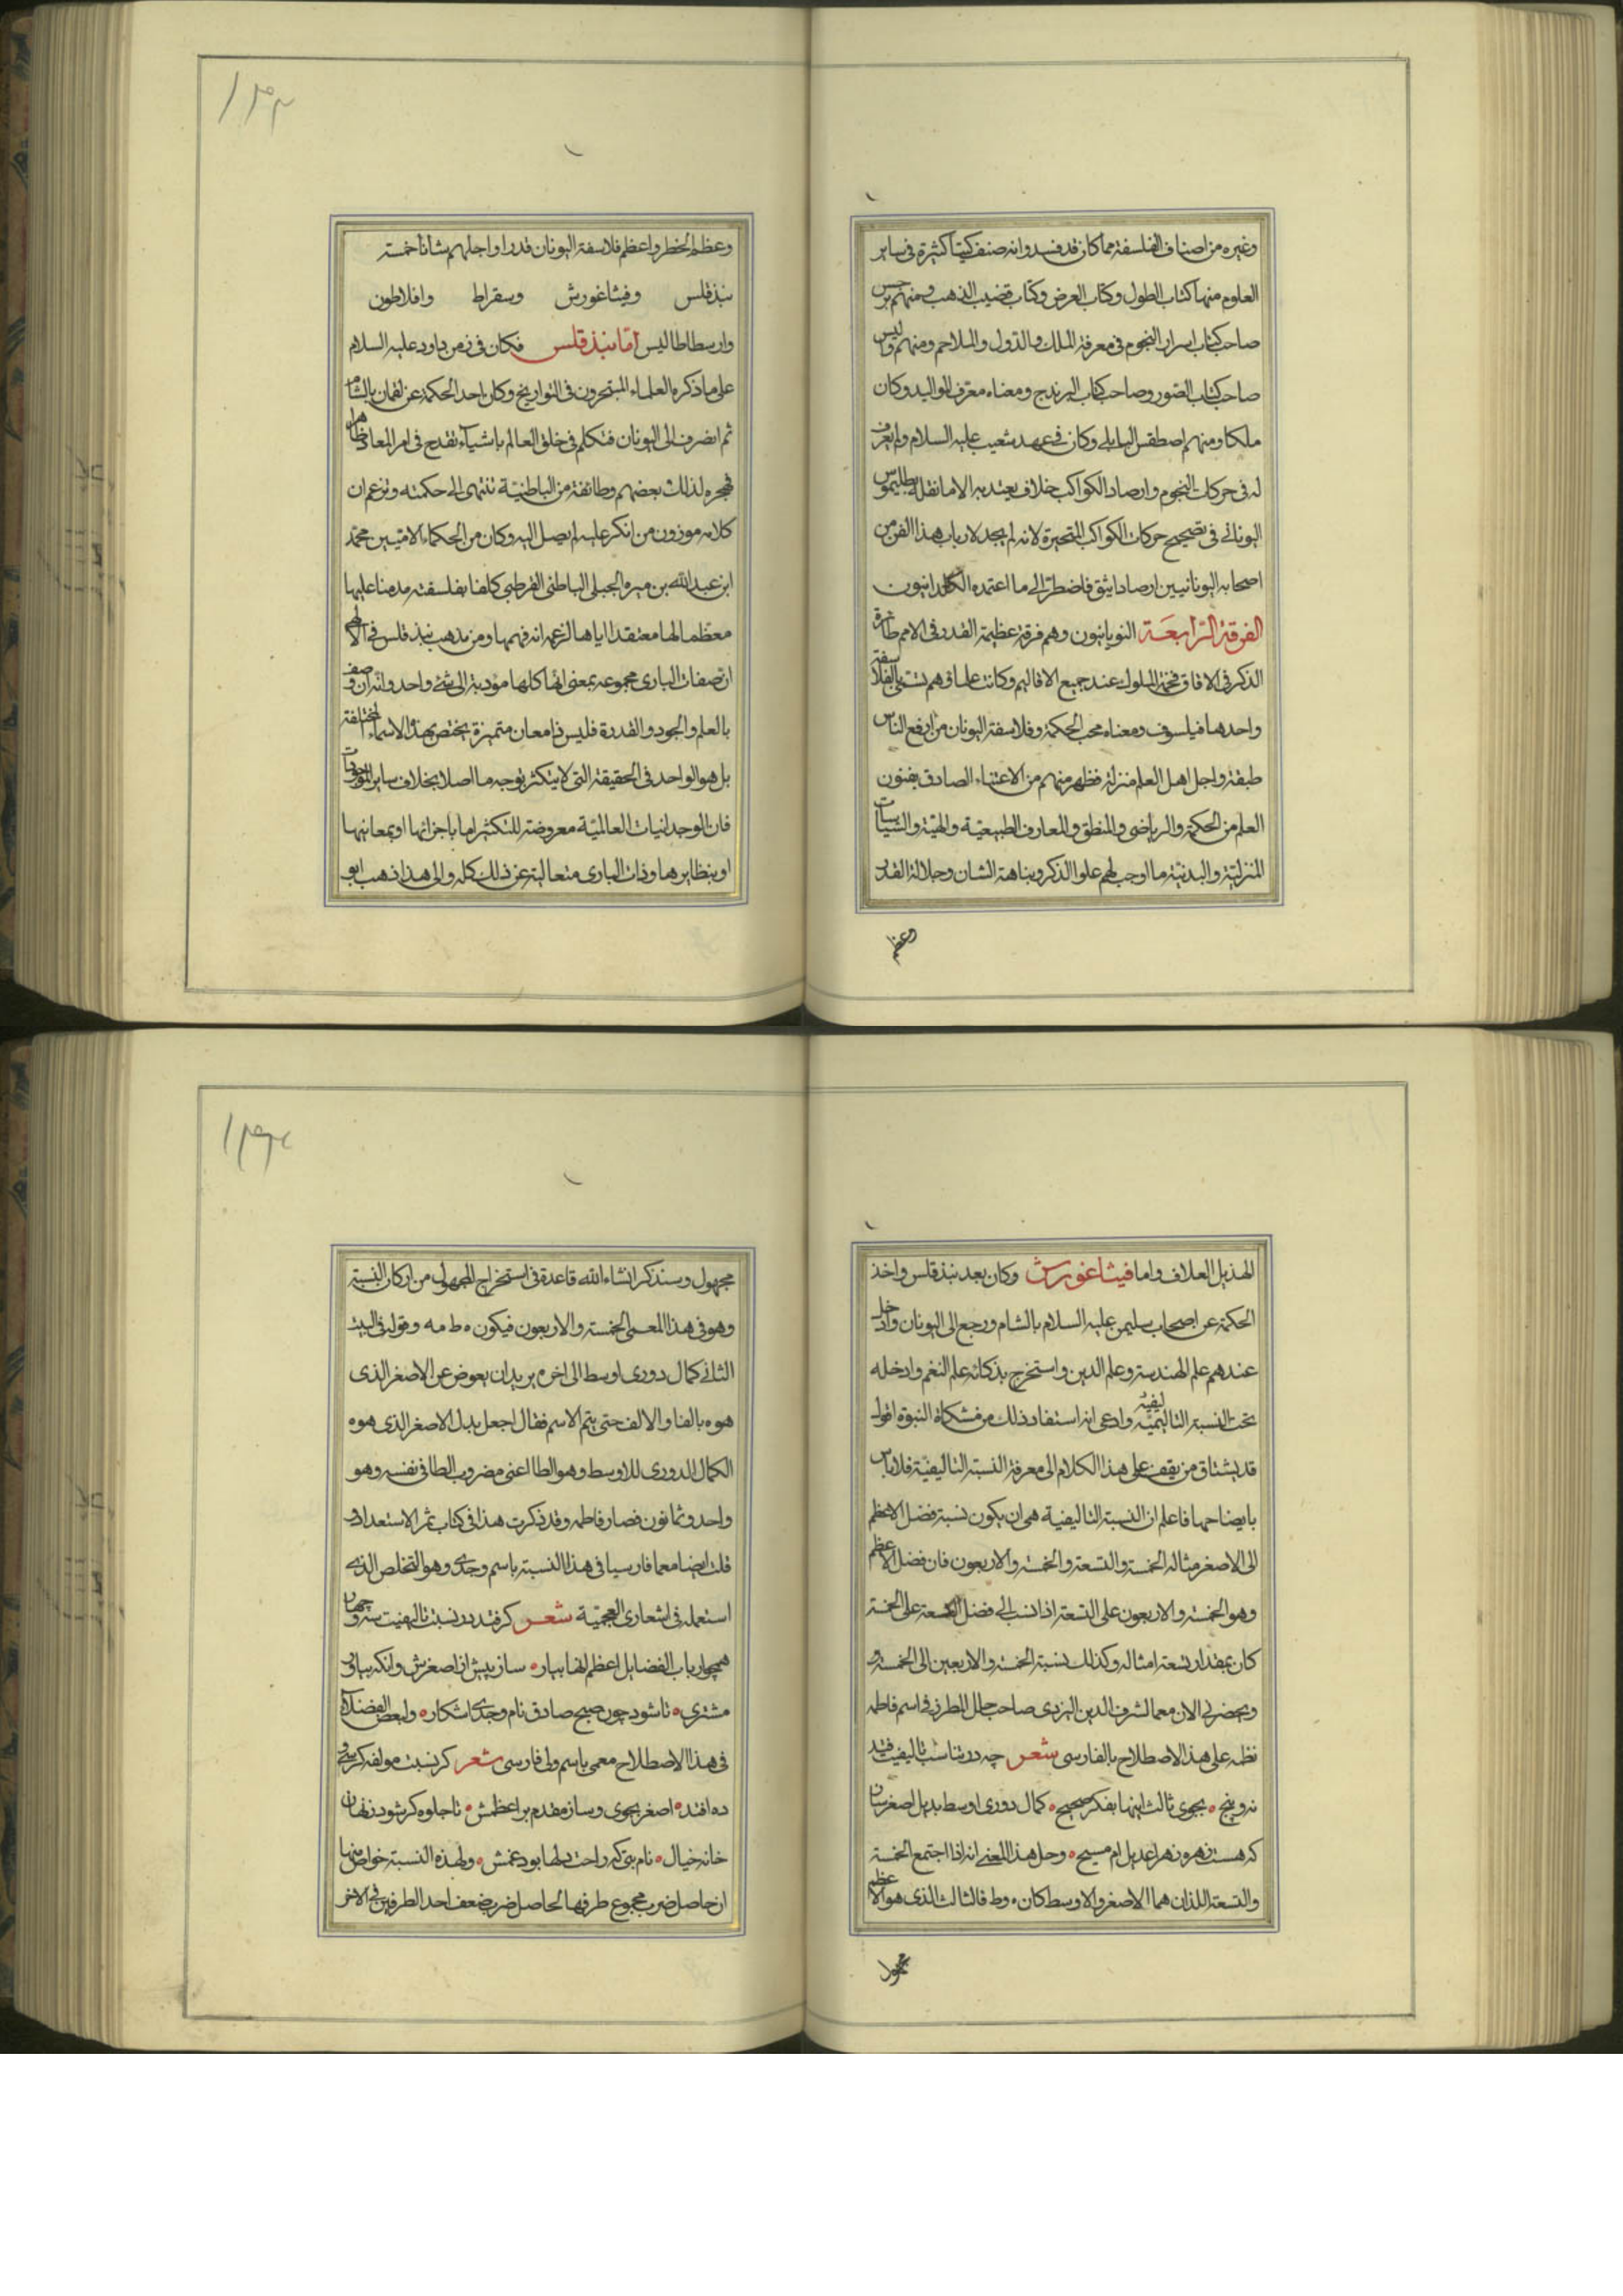 وغيره من اصناف الفلسفة مما كان قد فسد وانه صنف كتبا كثيرة في ساير
العلوم منها كتاب الطول وكتاب العرض وكتاب قضيب الذهب ومنهم برجس
صاحب كتاب اسرار النجوم في معرفة الملك والدول والملاحم ومنهم واليس
صاحب كتاب الصور وصاحب كتاب البرندج ومعناه معرف المواليد وكان
ملكا ومنهم اصطفن البابلي وكان في عهد شعيب عليه السلام ولم يعرف
له في حركات النجوم وارصاد الكواكب خلاف يعتد به الا ما نقله بطليموس
اليوناني في تصحيح حركات الكواكب المتحيرة لانه لم يجد لارباب هذا الفن من
اصحابه اليونانيين ارصادا يثق فاضطر الى ما اعتمده الكلدانيون
الفرقة الرابعة اليونانيون وهم فرقة عظيمة القدر في الامم طائرة
الذكر في الافاق فخمة الملوك عند جميع الاقاليم وكانت علماؤهم تسمى بالفلاسفة
واحدها فيلسوف ومعناه محب الحكمة وفلاسفة اليونان من ارفع الناس
طبقة واجل اهل العلم منزلة فظهر منهم من الاعتناء الصادق بفنون
العلم من الحكمة والرياضى والمنطق والمعارف الطبيعية والهية والسياسات
المنزلية والبدنية ما اوجب لهم علوا الذكر ونباهة الشان وجلالة القدر
وعظم
١٣٢
وعظم الخطر واعظم فلاسفة اليونان قدرا واجلهم شانا خمسة
بندقلس وفيثاغورش وسقراط وافلاطون
وارسطاطاليس اما بندقلس فكان في زمن داود عليه السلام
على ما ذكره العلماء المتبحرون في التواريخ وكان اخذ الحكمة عن لقمان بالشام
ثم انصرف الى اليونان فتكلم في خلق العالم باشيآء تقدح في امر المعاد ظاهرا
فهجره لذلك بعضهم وطائفة من الباطنية تنتهى الى حكمته وتزعم ان
كلامه موزون من انكر عليه لم يصل اليه وكان من الحكماء الاميين محمد
ابن عبد الله بن ميره الجبلى الباطنى القرطبى كلفا بفلسفته مدمنا عليها
معظما لها معتقدا اياها لزعمه انه فهمها ومن مذهب بندقلس في الاله
ان صفات البارى مجموعه بمعنى انها كلها مودية الى شئ واحد وانه ان وصف
بالعلم والجود والقدرة فليس ذا معان متميزة يختص بهذه الاسماء المختلفة
بل هو الواحد في الحقيقة التى لا يتكثر بوجه ما اصلا بخلاف ساير الموجودات
فان الوحدانيات العالمية معروضة للتكثر اما باجزائها او بمعانيها
او بنظايرها وذات البارى متعالية عن ذلك كله والى هذا ذهب ابو
الهذيل العلاف واما فيثاغورش وكان بعد بندقلس واخذ
الحكمة عن اصحاب سليمن عليه السلام بالشام ورجع الى اليونان وادخل
عندهم علم الهندسة وعلم الدين واستخرج بذكائه علم النغم وادخله
تحت النسبة التاليفيه وادعى انه استفاد ذلك من مشكاة النبوة اقول
قد يشتاق من يقف على هذا الكلام الى معرفة النسبة التاليفية فلا باس
بايضاحها فاعلم ان النسبة التاليفية هى ان يكون نسبة فضل الاعظم
الى الاصغر مثاله الخمسة والتسعة والخمسة والاربعون فان فضل الاعظم
وهو الخمسة والاربعون على التسعة اذا نسب الى فضل التسعة على الخمسة
كان بمقدار تسعة امثاله وكذلك نسبة الخمسة والاربعين الى الخمسة و
يحضرني الان معما لشرف الدين اليزدى صاحب حلل المطرز في اسم فاطمه
نظمه على هذا الاصطلاح بالفارسى شعر چه در تناسب تاليفيت فتد
نه وپنج بجوى ثالث اينها بفكر صحيح كمال دورى اوسط بديل اصغر سان
كه هست زهره زهرا عديل ام مسيح وحل هذا المعنى انه اذا اجتمع الخمسة
والتسعة اللذان هما الاصغر والاوسط كان ه وط فالثالث الذى هو الاعظم
مجهول
١٣٣
مجهول وسنذكر انشاء الله قاعدة في استخراج المجهول من اركان النسبة
وهو في هذا المعمى الخمسة والاربعون فيكون ه ط مه وقوله في البيت
الثاني كمال دورى اوسط الى اخره يريد ان يعوض عن الاصغر الذى
هو ه بالفا والالف حتى يتم الاسم فقال اجعل بدل الاصغر الذى هو ه
الكمال الدورى للاوسط وهو الطا اعنى مضروب الطا في نفسه وهو
واحد وثمانون فصار فاطمه وقد ذكرت هذا في كتاب ثمر الاستعداد و
قلت ايضا معما فارسيا في هذا النسبة باسم وجدى وهو التخلص الذى
استعمله في اشعارى العجمية شعر كر فتد در نسبت تاليفيت سه وچهار
همچو ارباب الفضايل اعظم انها بيار ساز پيش از اصغرش وانكه بياور
مشترى تا شود چون صبح صادق نام وجدى اشكار ولبعض الفضلاء
في هذا الاصطلاح معمى باسم ولى فارسى شعر كر نسبت مولفه كر سى و
ده افتد اصغر بجوى وساز مقدم بر اعظمش تا جلوه كر شود ز نهان
خانه خيال نام بتى كه راحت دلها بود غمش ولهذه النسبة خواص منها
ان حاصل ضرب مجموع طرفها لحاصل ضرب ضعف احد الطرفين في الاخر